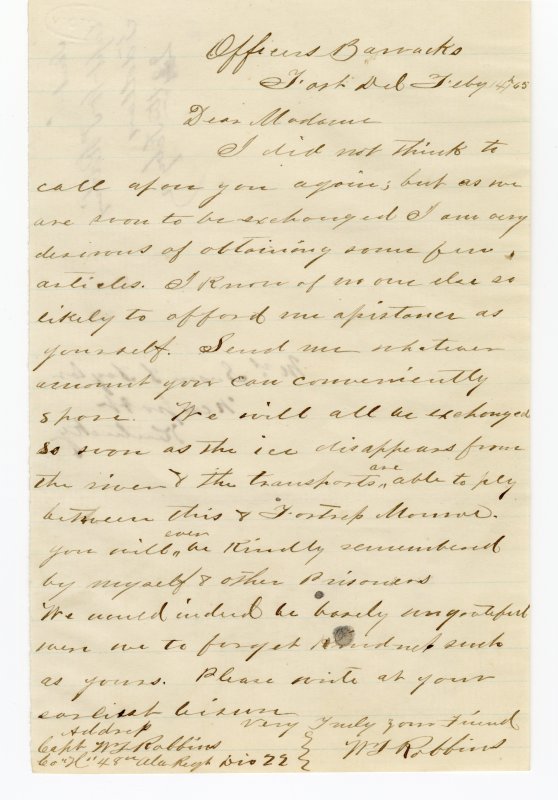 Officers Barracks
Fort Del Feby 14th 65
Dear Madame
I did not think to
call upon you again; but as we
are soon to be exchanged I am very
desirous of obtaining some few
articles. I know of no one else so
likely to afford me assistance as
yourself. Send me whatever
amount you can conveniently
spare. We will all be exchanged
so soon as the ice disappears from
the river & the transports are able to ply
between this & Fortress Monroe.
you will even be kindly remembered
by myself & other Prisoners
We would indeed be basely ungrateful
were we to forget kindness such
as yours. Please write at your
earliest leisure
Very Truly your Friend
W J Robbins
Address
Capt. W J Robbins
Co "H" 48th Ala Regt Div 22